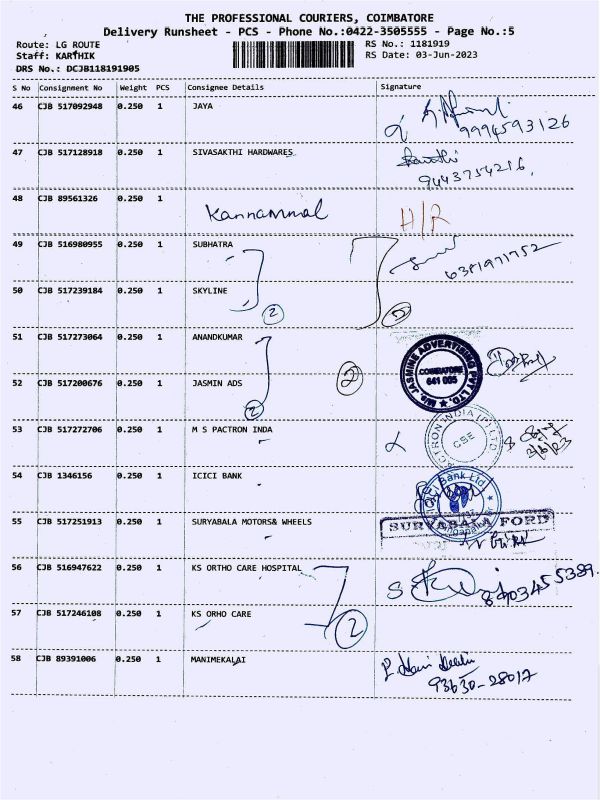 THE PROFESSIONAL COURIERS, COIMBATORE
Delivery Runsheet - PCS - Phone No.:0422-3505555 - Page No.:5
Route: LG ROUTE
RS No.: 1181919
Staff: KARTHIK
RS Date: 03-Jun-2023
DRS No.: DCJB118191905
S No Consignment No Weight PCS Consignee Details Signature
46 CJB 517092948 0.250 1 JAYA
9994593126
47 CJB 517128918 0.250 1 SIVASAKTHI HARDWARES
9443754216
48 CJB 89561326 0.250 1
Kannammal H/R
49 CJB 516980955 0.250 1 SUBHATRA
6381971752
50 CJB 517239184 0.250 1 SKYLINE
2
51 CJB 517273064 0.250 1 ANANDKUMAR
M/s. JASMINE ADVERTISING PVT LTD.
COIMBATORE
641 005
52 CJB 517200676 0.250 1 JASMIN ADS
2 2
53 CJB 517272706 0.250 1 M S PACTRON INDA
CSE
3/6/23
54 CJB 1346156 0.250 1 ICICI BANK
Bank Ltd
55 CJB 517251913 0.250 1 SURYABALA MOTORS& WHEELS
SURYABALA FORD
56 CJB 516947622 0.250 1 KS ORTHO CARE HOSPITAL
57 CJB 517246108 0.250 1 KS ORHO CARE
2
58 CJB 89391006 0.250 1 MANIMEKALAI
93630-28017